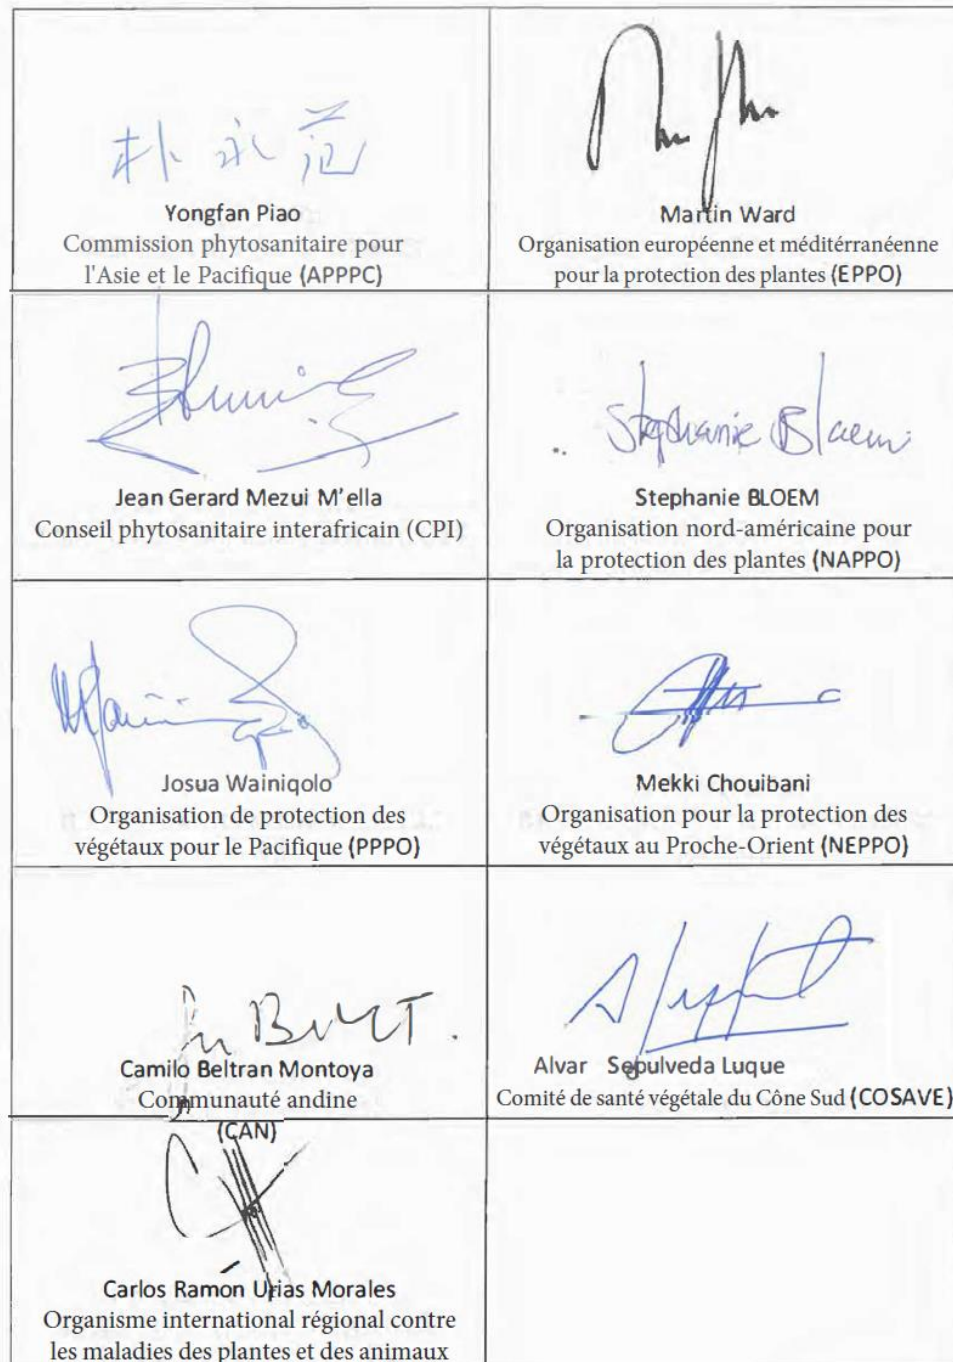 朴永范
Yongfan Piao
Commission phytosanitaire pour
l'Asie et le Pacifique (APPPC)
Martin Ward
Organisation européenne et méditérranéenne
pour la protection des plantes (EPPO)
Jean Gerard Mezui M'ella
Conseil phytosanitaire interafricain (CPI)
Stephanie Bloem
Stephanie BLOEM
Organisation nord-américaine pour
la protection des plantes (NAPPO)
Josua Wainiqolo
Organisation de protection des
végétaux pour le Pacifique (PPPO)
Mekki Chouibani
Organisation pour la protection des
végétaux au Proche-Orient (NEPPO)
Camilo Beltran Montoya
Communauté andine
(CAN)
Alvar Sepulveda Luque
Comité de santé végétale du Cône Sud (COSAVE)
Carlos Ramón Urias Morales
Organisme international régional contre
les maladies des plantes et des animaux